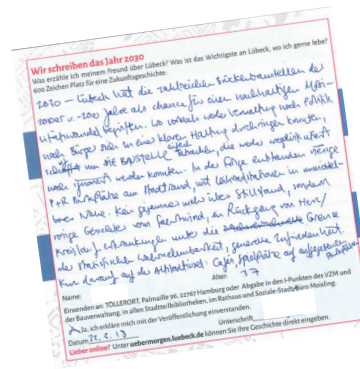 Wir schreiben das Jahr 2030
Was erzähle ich meinem Freund über Lübeck? Was ist das Wichtigste an Lübeck, wo ich gerne lebe?
600 Zeichen Platz für eine Zukunftsgeschichte:
2030 – Lübeck hat die zahlreichen Brückenbaustellen der
200er Jahre als Chance für einen nachhaltigen
begriffen. Wo vormals weder Verwaltung noch Politik
noch Bürger sich zu einer klaren Haltung durchringen konnten,
um die BAUSTELLE einfach Tatsachen, die weder wegdiskutiert
noch ignoriert werden konnten. In der Folge entstanden riesige
P+R Parkplätze am Stadtrand, mit in
Nähe. Kein mehr über Stillstand, sondern
vom Fahrtwind, ein Rückgang von Herz/
Kreislauferkrankungen unter die Grenze
der statistischen Wahrnehmbarkeit, generelle Zufriedenheit.
Kurz darauf auf der Altstadtinsel: Cafés, Spielplätze auf
Name:
Alter: 37
Einsenden an: TÖLLERORT, Palmaille 96, 22767 Hamburg oder Abgabe in den I-Punkten des VZM und
der Bauverwaltung, in allen Stadtteilbibliotheken, im Rathaus und Soziale-Stadtbüro Moisling.
Ja, ich erkläre mich mit der Veröffentlichung einverstanden.
Datum Unterschrift
Lieber online? Unter uebermorgen.luebeck.de können Sie Ihre Geschichte direkt eingeben.